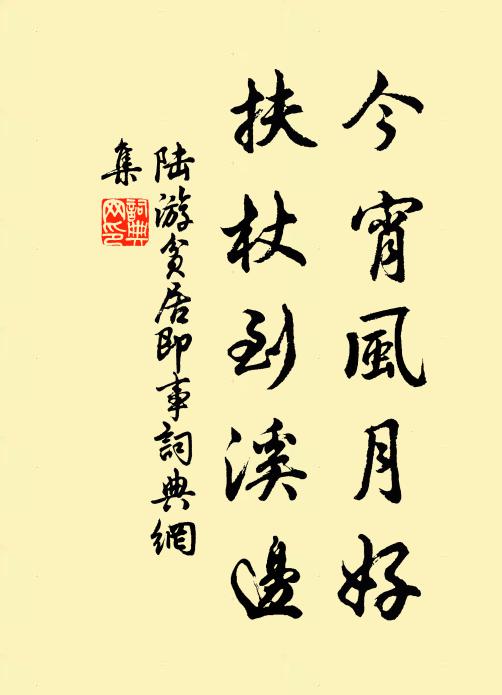 今宵風月好
扶杖到溪邊
陆游貧居即事詞典網
集
詞典
网印